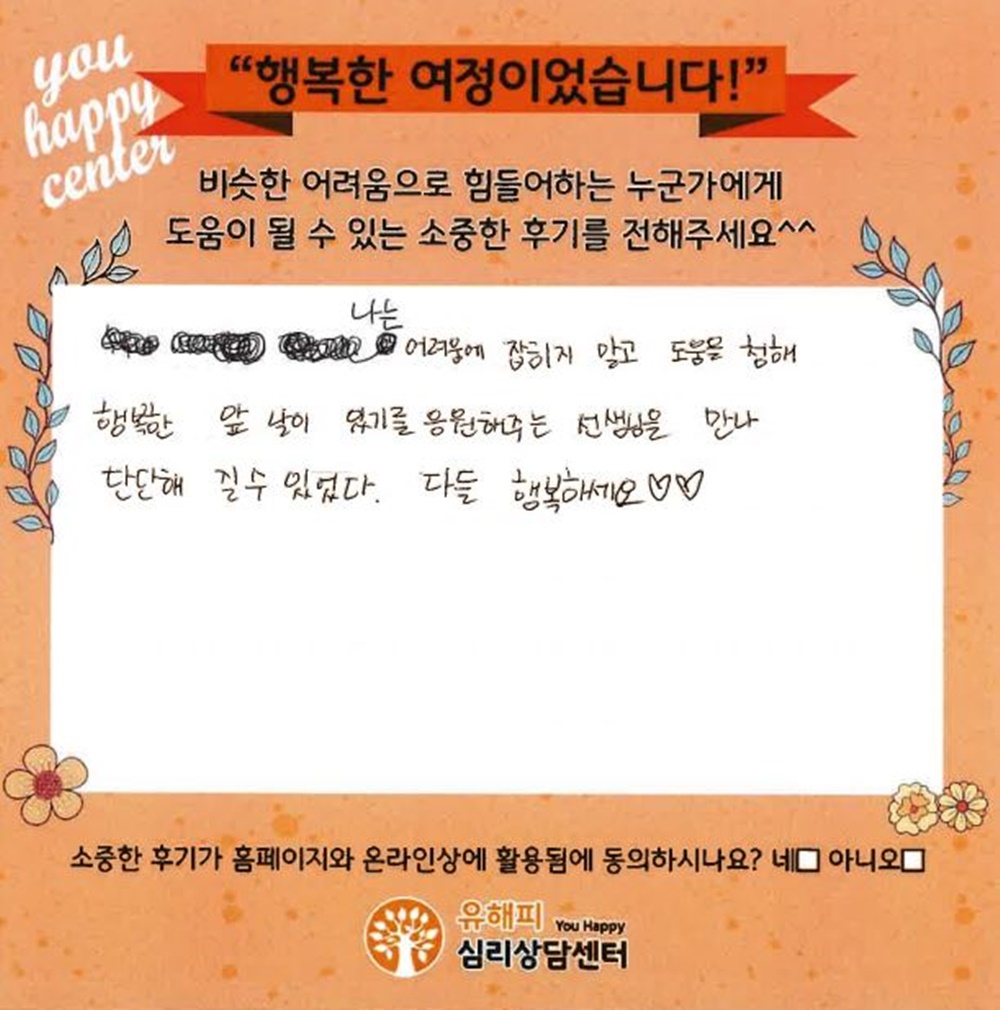 you
happy
center
“행복한 여정이었습니다!”
비슷한 어려움으로 힘들어하는 누군가에게
도움이 될 수 있는 소중한 후기를 전해주세요^^
나는
어려움에 잡히지 말고 도움을 청해
행복한 앞 날이 있기를 응원해주는 선생님을 만나
단단해 질 수 있었다. 다들 행복하세요♡♡
소중한 후기가 홈페이지와 온라인상에 활용됨에 동의하시나요? 네□ 아니오□
유해피 You Happy
심리상담센터